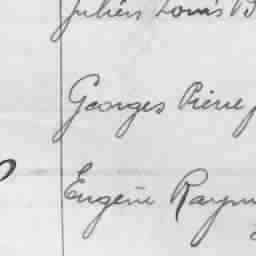 Julien Louis
Georges Pierre
Eugène Raym